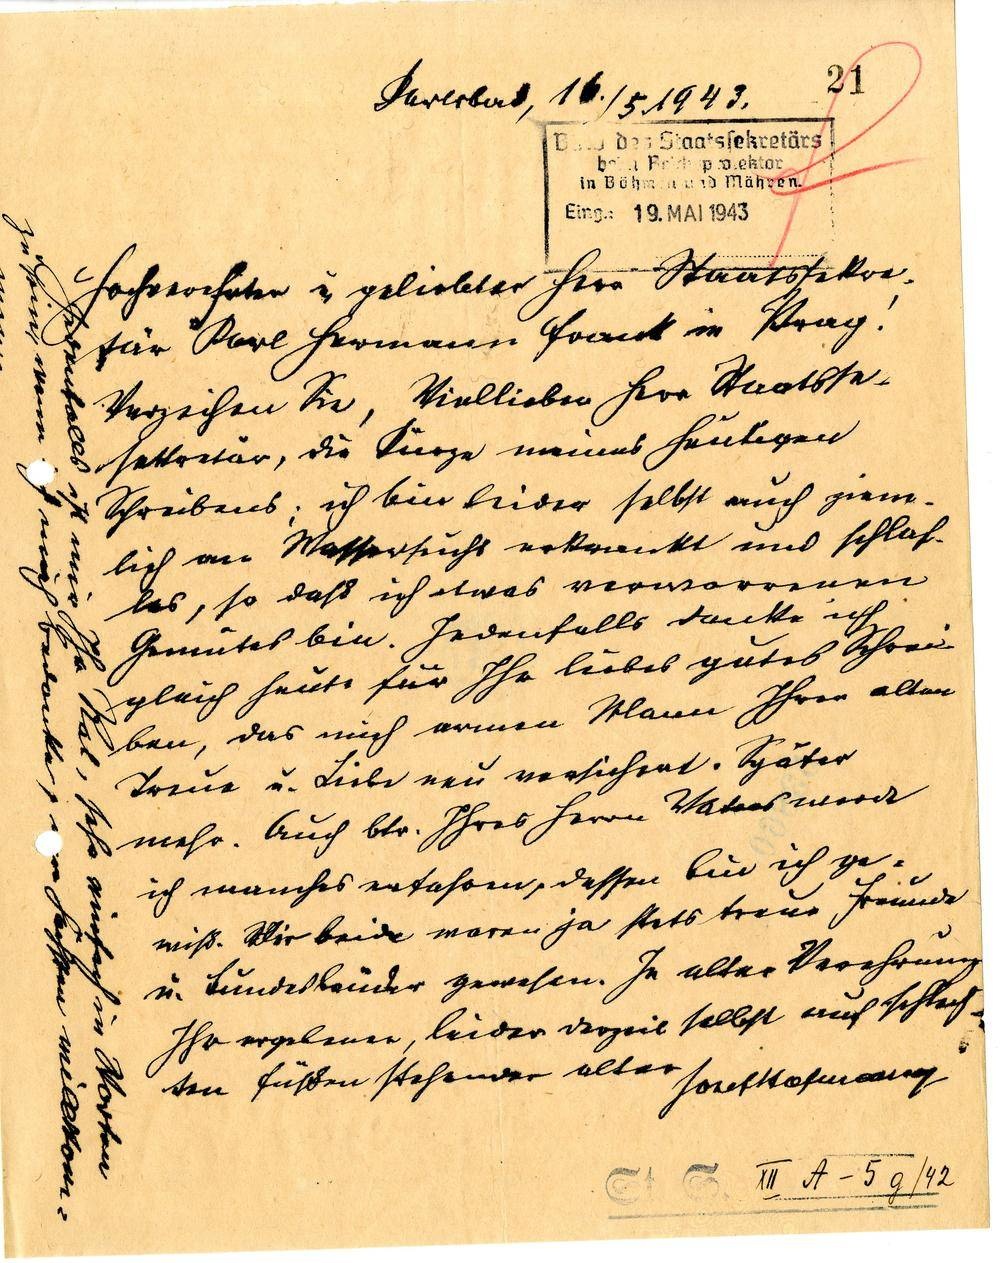 21
Karlsbad, 16./5.1943.
Büro des Staatssekretärs
beim Reichsprotektor
in Böhmen und Mähren.
Eing.: 19. MAI 1943
Hochverehrter u. geliebter Herr Staatssekre-
tär Karl Hermann Frank in Prag!
Verzeihen Sie, Viellieber Herr Staatsse-
sekretär, die Kürze meines heutigen
Schreibens; ich bin leider selbst auch ziem-
lich an Wassersucht erkrankt und schlaf-
los, so daß ich etwas verworrenen
Gemütes bin. Jedenfalls danke ich
gleich heute für Ihr liebes gutes Schrei-
ben, das mich armen Mann Ihrer alten
Treue u. Liebe neu versichert. Später
mehr. Auch btr. Ihres Herrn Vaters werde
ich manches erfahren, dessen bin ich ge-
wiß. Wir beide waren ja stets treue Freunde
u. Bundesbrüder gewesen. In alter Verehrung
Ihr ergebener, leider derzeit selbst auf schlech-
ten Füßen stehender alter Josef Hofmann
Jedenfalls ist mir Ihr Rat, sehr einfach in Worten
zu sein, wenn ich mich bedanke,
St. S. XII A - 5 g/42